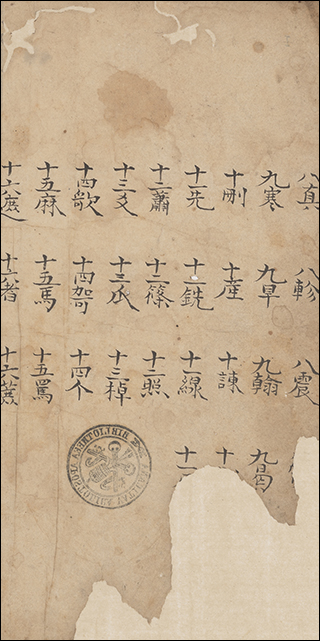 八真 八軫 八震
九寒 九旱 九翰 九曷
十刪 十産 十諫 十
十一先 十一銑 十一線 十一
十二蕭 十二篠 十二照
十三爻 十三爪 十三棹
十四歌 十四哿 十四个
十五麻 十五馬 十五罵
十六遮 十六者 十六蔗